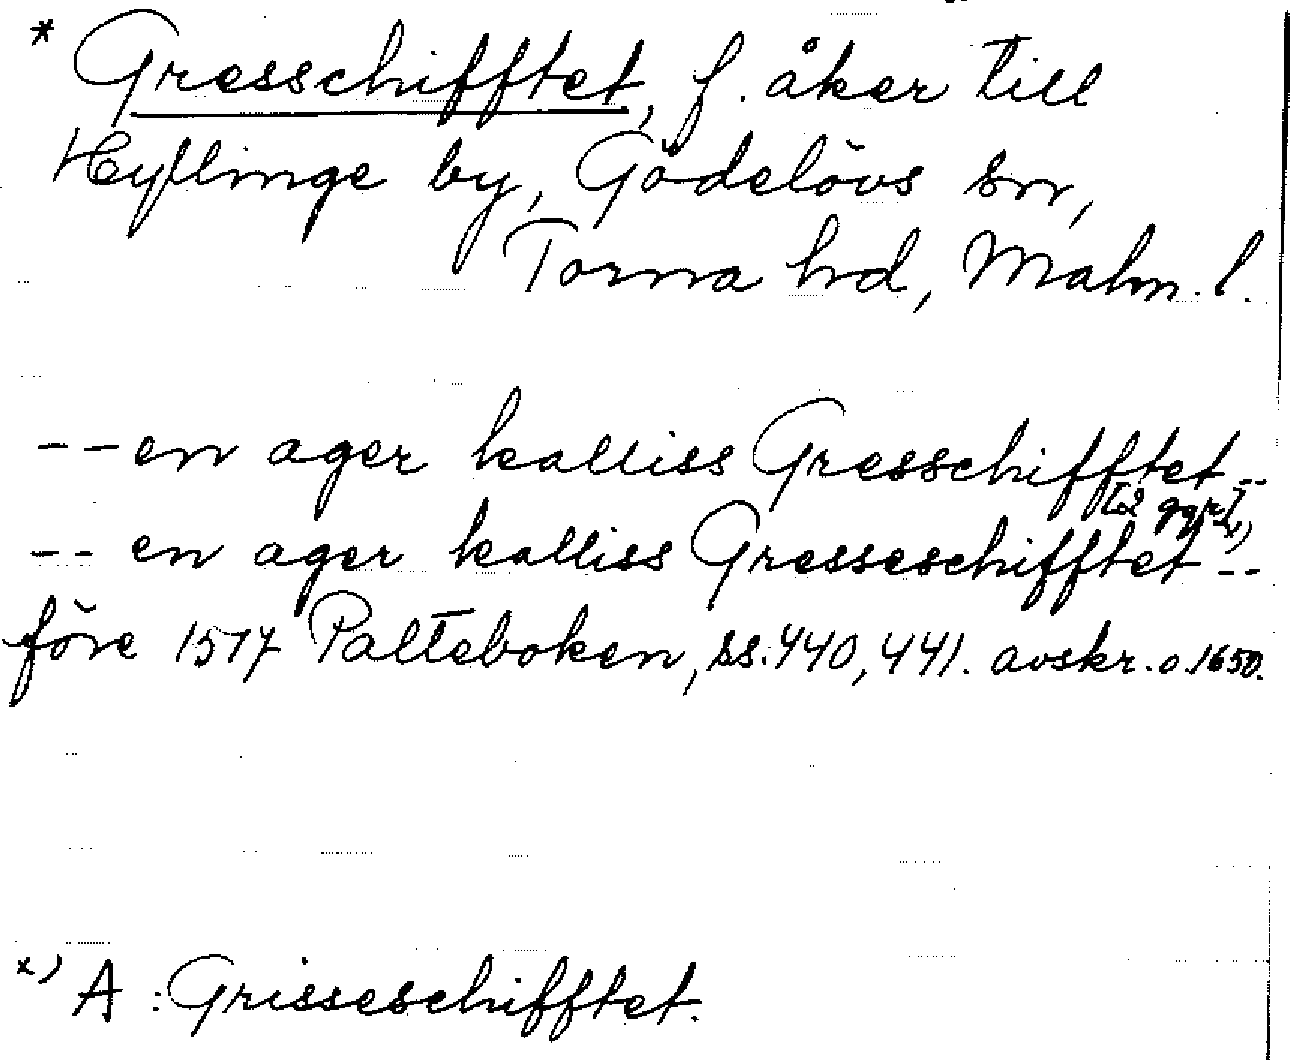 * Gresschifftet, f. åker till
Hyllinge by, Gödelövs sn,
Torna hd, Malm. l.
-- en ager kalliss Gresschifftet --
[2 ggr]
-- en ager kalliss Gresseschifftet x) --
före 1517 Palteboken, ss. 440, 441. avskr. o. 1650.
x) A : Grisseschifftet.